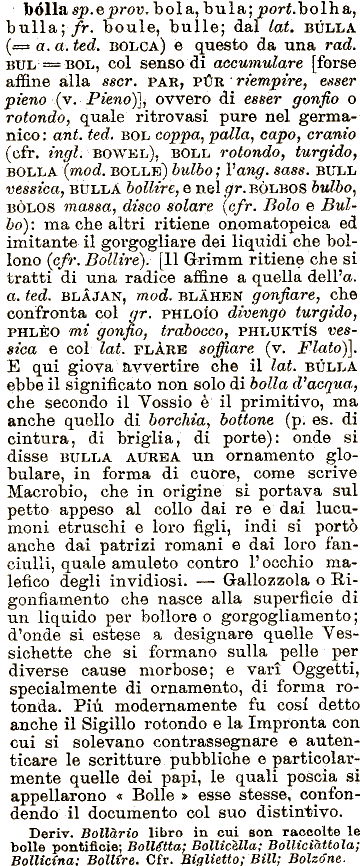 bólla sp. e prov. bola, bula; port. bolha,
bulla; fr. boule, bulle; dal lat. BÙLLA
(= a. a. ted. BOLCA) e questo da una rad.
BUL = BOL, col senso di accumulare [forse
affine alla sscr. PAR, PÛR riempire, esser
pieno (v. Pieno)], ovvero di esser gonfio o
rotondo, quale ritrovasi pure nel germa-
nico: ant. ted. BOL coppa, palla, capo, cranio
(cfr. ingl. BOWEL), BOLL rotondo, turgido,
BOLLA (mod. BOLLE) bulbo; l'ang. sass. BULL
vessica, BULLA bollire, e nel gr. BÒLBOS bulbo,
BÒLOS massa, disco solare (cfr. Bolo e Bul-
bo): ma che altri ritiene onomatopeica ed
imitante il gorgogliare dei liquidi che bol-
lono (cfr. Bollire). [Il Grimm ritiene che si
tratti di una radice affine a quella dell'a.
a. ted. BLÂJAN, mod. BLÄHEN gonfiare, che
confronta col gr. PHLOÍO divengo turgido,
PHLÈO mi gonfio, trabocco, PHLUKTÍS ves-
sica e col lat. FLÀRE soffiare (v. Flato)].
E qui giova avvertire che il lat. BÙLLA
ebbe il significato non solo di bolla d'acqua,
che secondo il Vossio è il primitivo, ma
anche quello di borchia, bottone (p. es. di
cintura, di briglia, di porte): onde si
disse BULLA AUREA un ornamento glo-
bulare, in forma di cuore, come scrive
Macrobio, che in origine si portava sul
petto appeso al collo dai re e dai lucu-
moni etruschi e loro figli, indi si portò
anche dai patrizi romani e dai loro fan-
ciulli, quale amuleto contro l'occhio ma-
lefico degli invidiosi. — Gallozzola o Ri-
gonfiamento che nasce alla superficie di
un liquido per bollore o gorgogliamento;
d'onde si estese a designare quelle Ves-
sichette che si formano sulla pelle per
diverse cause morbose; e varî Oggetti,
specialmente di ornamento, di forma ro-
tonda. Piú modernamente fu cosí detto
anche il Sigillo rotondo e la Impronta con
cui si solevano contrassegnare e auten-
ticare le scritture pubbliche e particolar-
mente quelle dei papi, le quali poscia si
appellarono « Bolle » esse stesse, confon-
dendo il documento col suo distintivo.
Deriv. Bollàrio libro in cui son raccolte le
bolle pontificie; Bollétta; Bollicèlla; Bolliciàttola;
Bollicína; Bollíre. Cfr. Biglietto; Bill; Bolzóne.